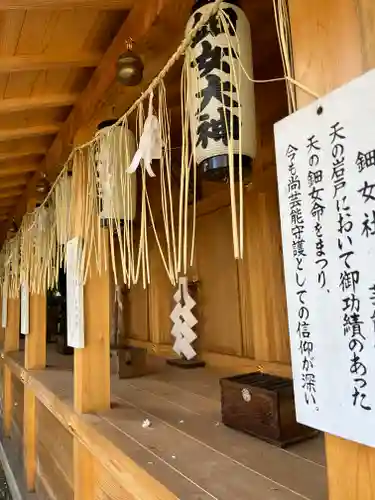 鈿女大神
鈿女社
天の岩戸において御功績のあった
天の鈿女命をまつり、
今も尚芸能守護としての信仰が深い。